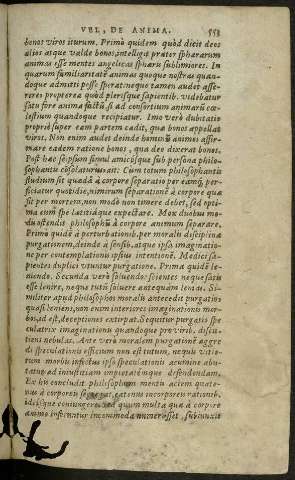 VEL, DE ANIMA. 553
bonos viros iturum. Primò quidem quòd dicit deos
alios atque valde bonos, intelligit præter sphærarum
animas esse mentes angelicas sphæris sublimiores. In
quarum familiaritatē animas quoque nostras quan-
doque admitti posse sperat: neque tamen audet asse-
rere: Propterea quòd plerisque sapientib. videbatur
satis fore animæ factū, si ad consortium animarū cœ-
lestium quandoque recipiatur. Imo verò dubitatio
propriè super eam partem cadit, qua bonos appellat
viros. Non enim audet deinde hominū animas affir-
mare eadem ratione bonos, qua deo dixerat bonos.
Post hæc seipsum simul amicosque sub persona philo-
sophantis cōsolaturus ait: Cum totum philosophantis
studium sit quædā à corpore separatio per eamque per-
ficiatur quotidie, nimirum separationē à corpore quæ
sit per mortem, non modò non timere debet, sed opti-
ma cum spe lætitiáque expectare. Mox duobus mo-
dis ostendit philosophū à corpore animum separare.
Primò quidē à perturbationib. per moralis disciplinæ
purgationem, deinde à sensib. atque ipsa imaginatio-
ne per contemplationis ipsius intentionē. Medici sa-
pientes duplici vtuntur purgatione. Prima quidē le-
niendo. Secunda verò soluendo: scientes neque satis
esse lenire, neque tutū soluere antequam lenias. Si-
militer apud philosophos moralis antecedit purgatio
quasi leniens, non enim interiores imaginationis mor-
bos, id est, deceptiones extirpat. Sequitur purgatio spe-
culatrix imaginationū quandoque pro virib. discu-
tiens nebulas. Ante verò moralem purgationē aggre-
di speculationis officium non est tutum, nequis vitio-
rum morbis infectus ipso speculationis acumine abu-
tatur ad iniustitiam impietatémque defendendam.
Ex his concludit philosophum mentis aciem quate-
nus à corporeis segregat, eatenus incorporeis rationib.
ideisque coniungere. Sed quum multa quæ à corpore
animo inferuntur incommoda numerasset, subiunxit